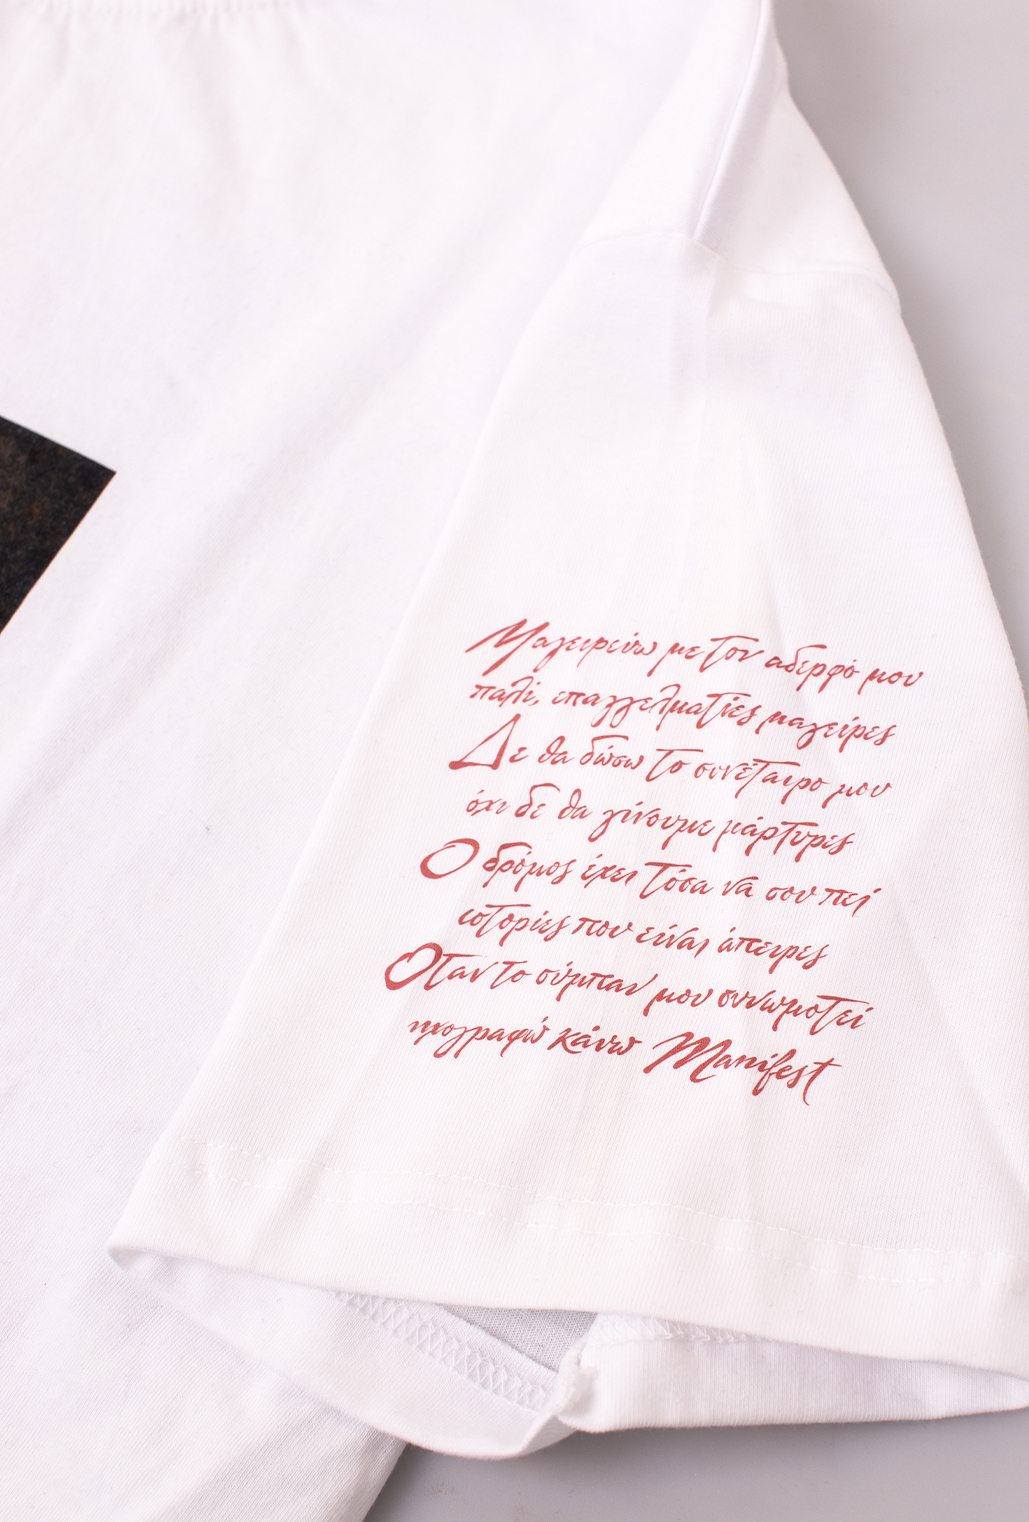 Μαγειρεύω με τον αδερφό μου
παλι, επαγγελματίες μαγείρες
Δε θα δώσω το συνέταιρο μου
όχι δε θα γίνουμε μάρτυρες
Ο δρόμος έχει τόσα να σου πει
ιστορίες που είναι άπειρες
Οταν το σύμπαν μου συνωμοτεί
ηχογραφώ κάνω Manifest